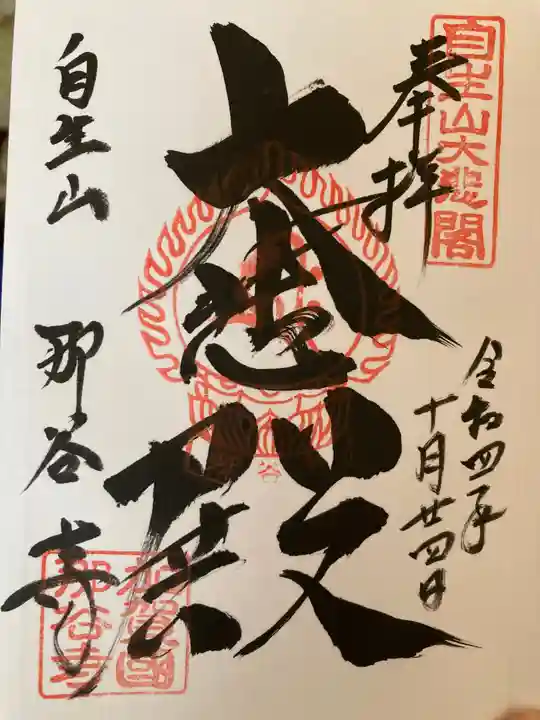 自生山大悲閣
奉拝
令和四年
十月廿四日
大悲殿
自生山
那谷寺
加賀國
那谷寺